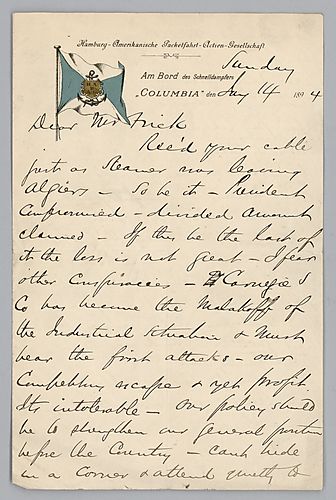 Hamburg-Amerikanische Packetfahrt-Actien-Gesellschaft
Sunday
Am Bord des Schnelldampfers
„COLUMBIA" den Jay 14 1894
Dear Mr Frick
Recd your cable
just as Steamer was leaving
Algiers — So be it — President
Compromised — divided amount
claimed — If this be the last of
it the loss is not great — I fear
other Conspiracies — Carnegie S
Co has become the Malakoff of
the Industrial situation & must
bear the first attacks — our
Competitors escape & yet profit
Its intolerable — our policy should
be to strengthen our general position
before the Country — can't hide
in a corner & attend quietly to